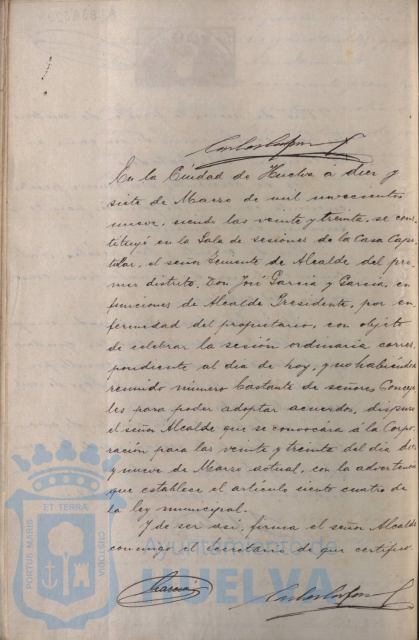 En la Ciudad de Huelva á diez y
siete de Marzo de mil novecientos
nueve, siendo las veinte y treinta, se cons-
tituyó en la Sala de sesiones de la Casa Capi-
tular, el señor Teniente de Alcalde del pri-
mer distrito, Don José Garcia y Garcia, en
funciones de Alcalde Presidente, por en-
fermedad del propietario, con objeto
de celebrar la sesión ordinaria corres-
pondiente al dia de hoy, y no habiéndose
reunido número bastante de señores Conceja-
les para poder adoptar acuerdos, dispuso
el señor Alcalde que se convocára á la Corpo-
ración para las veinte y treinta del dia diez
y nueve de Marzo actual, con la advertencia
que establece el artículo ciento cuatro de
la ley municipal.
Y de ser asi, firma el señor Alcalde
conmigo el Secretario de que certifico.
Garcia
PORTUS MARIS ET TERRAE CUSTODIA
Ayuntamiento de
HUELVA